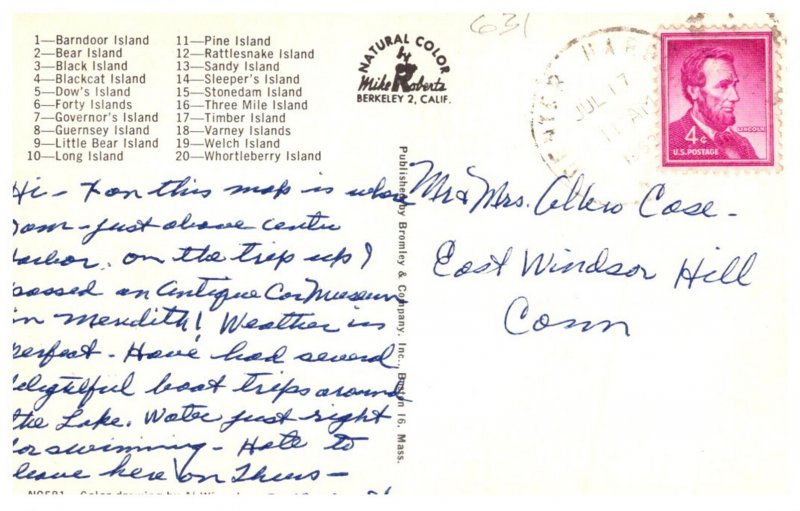 631
1—Barndoor Island
2—Bear Island
3—Black Island
4—Blackcat Island
5—Dow's Island
6—Forty Islands
7—Governor's Island
8—Guernsey Island
9—Little Bear Island
10—Long Island
11—Pine Island
12—Rattlesnake Island
13—Sandy Island
14—Sleeper's Island
15—Stonedam Island
16—Three Mile Island
17—Timber Island
18—Varney Islands
19—Welch Island
20—Whortleberry Island
NATURAL COLOR
by
Mike Roberts
BERKELEY 2, CALIF.
JUL 17
AM
4¢
LINCOLN
U.S. POSTAGE
Published by Bromley & Company, Inc., Boston 16, Mass.
Hi - X on this map is where
am - just above Center
arbor. on the trip up I
passed an Antique Car Museum
in Meredith! Weather is
perfect - Have had several
delightful boat trips around
the Lake. Water just right
for swimming - Hate to
leave here on Thurs -
Mr & Mrs. Case -
East Windsor Hill
Conn